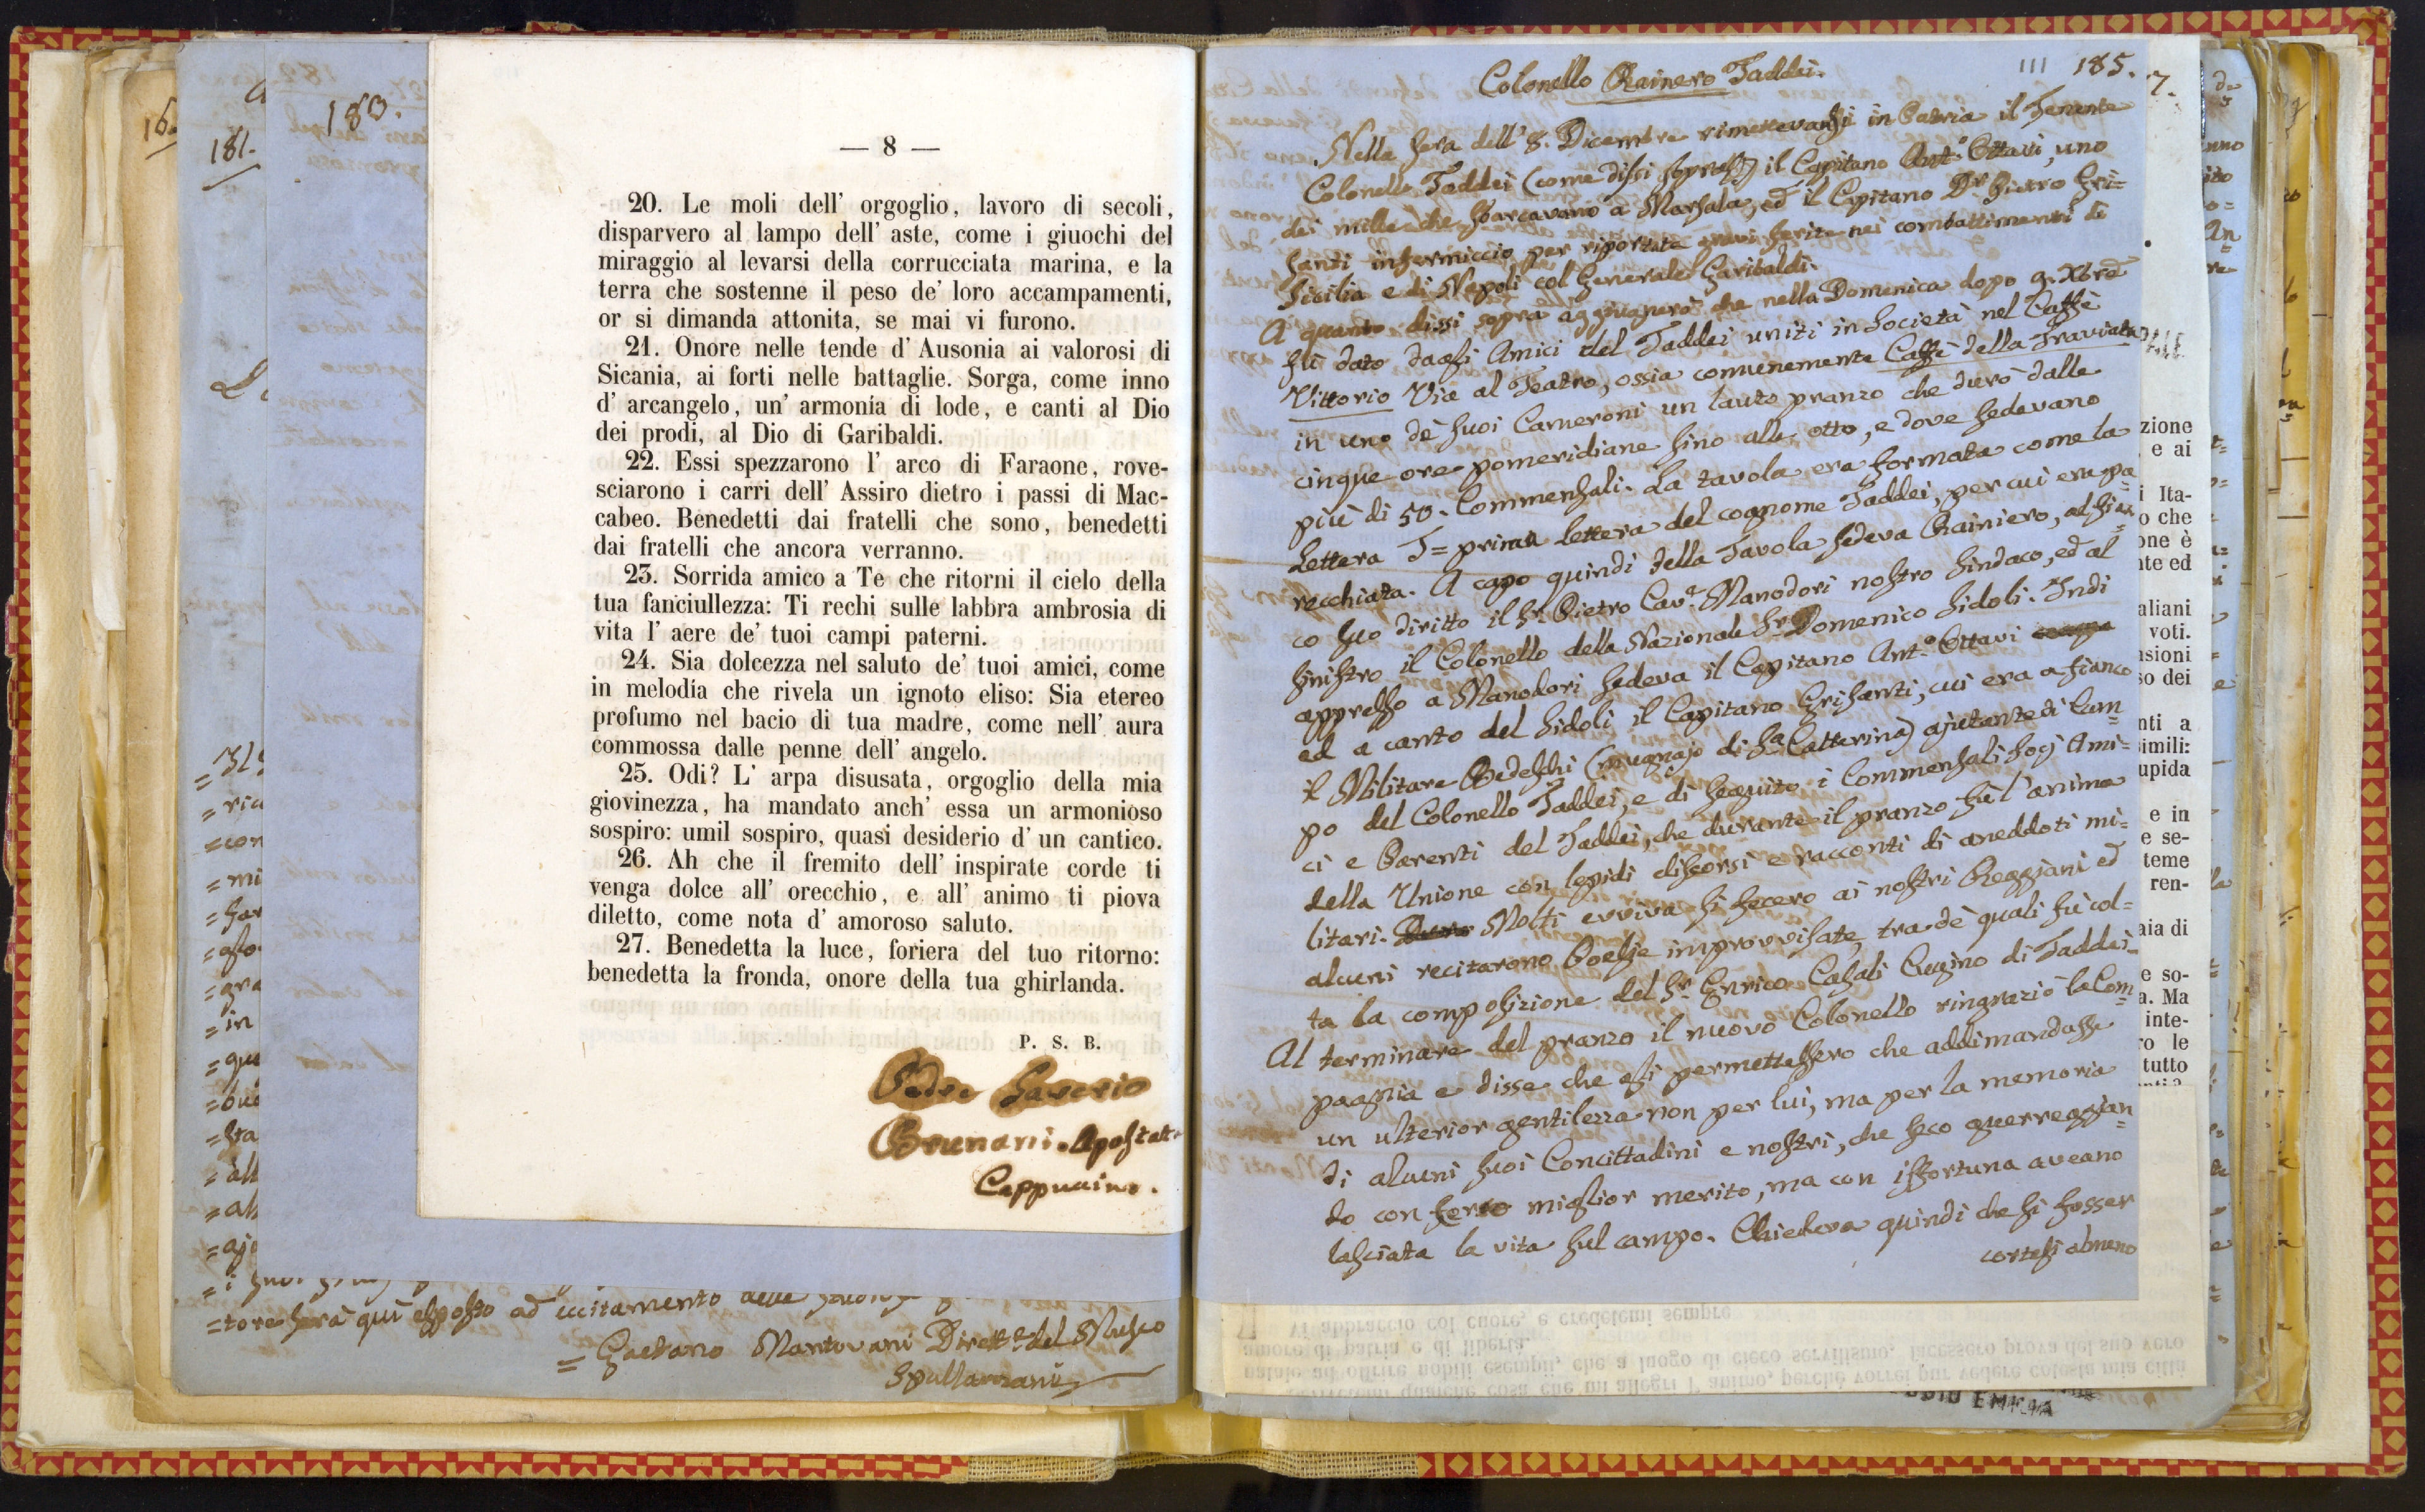 181.
183.
— 8 —
20. Le moli dell' orgoglio, lavoro di secoli,
disparvero al lampo dell' aste, come i giuochi del
miraggio al levarsi della corrucciata marina, e la
terra che sostenne il peso de' loro accampamenti,
or si dimanda attonita, se mai vi furono.
21. Onore nelle tende d' Ausonia ai valorosi di
Sicania, ai forti nelle battaglie. Sorga, come inno
d' arcangelo, un' armonía di lode, e canti al Dio
dei prodi, al Dio di Garibaldi.
22. Essi spezzarono l' arco di Faraone, rove-
sciarono i carri dell' Assiro dietro i passi di Mac-
cabeo. Benedetti dai fratelli che sono, benedetti
dai fratelli che ancora verranno.
23. Sorrida amico a Te che ritorni il cielo della
tua fanciullezza: Ti rechi sulle labbra ambrosia di
vita l' aere de' tuoi campi paterni.
24. Sia dolcezza nel saluto de' tuoi amici, come
in melodía che rivela un ignoto eliso: Sia etereo
profumo nel bacio di tua madre, come nell' aura
commossa dalle penne dell' angelo.
25. Odi? L' arpa disusata, orgoglio della mia
giovinezza, ha mandato anch' essa un armonioso
sospiro: umil sospiro, quasi desiderio d' un cantico.
26. Ah che il fremito dell' inspirate corde ti
venga dolce all' orecchio, e all' animo ti piova
diletto, come nota d' amoroso saluto.
27. Benedetta la luce, foriera del tuo ritorno:
benedetta la fronda, onore della tua ghirlanda.
P. S. B.
Padre Saverio
Brunani. Apostat
Cappuccino.
=tore sarà quì esposto ad eccitamento
= Gaetano Mantovani Dirett.e del Museo
Spallanzani
Colonello Rainero Taddei.
III 185.
Nella sera dell' 8. Dicembre rimettevansi in Patria il Tenente
Colonello Taddei (come dissi sopra) il Capitano Ant.o Ottavi, uno
dei mille che sbarcavano a Marsala, ed il Capitano Dr Pietro Gri=
santi infermiccio per riportate gravi ferite nei combattimenti di
Sicilia e di Napoli col Generale Garibaldi.
A quanto dissi sopra aggiugnerò che nella Domenica dopo 9. Xbre
fù dato dagli Amici del Taddei uniti in Società nel Caffè
Vittorio Via al Teatro, ossia comunemente Caffè della Traviata
in uno de' suoi Cameroni un lauto pranzo che durò dalle
cinque ore pomeridiane sino alle otto, e dove sedevano
più di 50. Commensali. La tavola era formata come la
Lettera T= prima lettera del cognome Taddei, per cui era pa
recchiata. A capo quindi della Tavola sedeva Rainiero, al fian
co suo diritto il Sr. Pietro Cav.e Manodori nostro Sindaco, ed al
sinistro il Colonello della Nazionale Sr. Domenico Sidoli. Indi
appresso a Manodori sedeva il Capitano Ant.o Ottavi
ed a canto del Sidoli il Capitano Grisanti, cui era a fianco
il Militare Bedeschi (mugnajo di Sa Catterina) ajutante di Cam
po del Colonello Taddei, e di seguito i Commensali Socj Ami=
ci e Parenti del Taddei, che durante il pranzo fù l'anima
della Unione con lepidi discorsi e racconti di aneddoti mi=
litari. Molti evviva si fecero ai nostri Reggiani ed
alcuni recitarono Poesie improvvisate, tra de' quali fù col=
ta la composizione del Sr. Enrico Casali Cugino di Taddei.
Al terminare del pranzo il nuovo Colonello ringraziò la Com
pagnia e disse che gli permettessero che addimandasse
un ulterior gentilezza non per lui, ma per la memoria
di alcuni suoi Concittadini e nostri, che seco guerreggian
do con forse miglior merito, ma con isfortuna aveano
lasciata la vita sul campo. Chiedeva quindi che si fosser
cortesi almeno